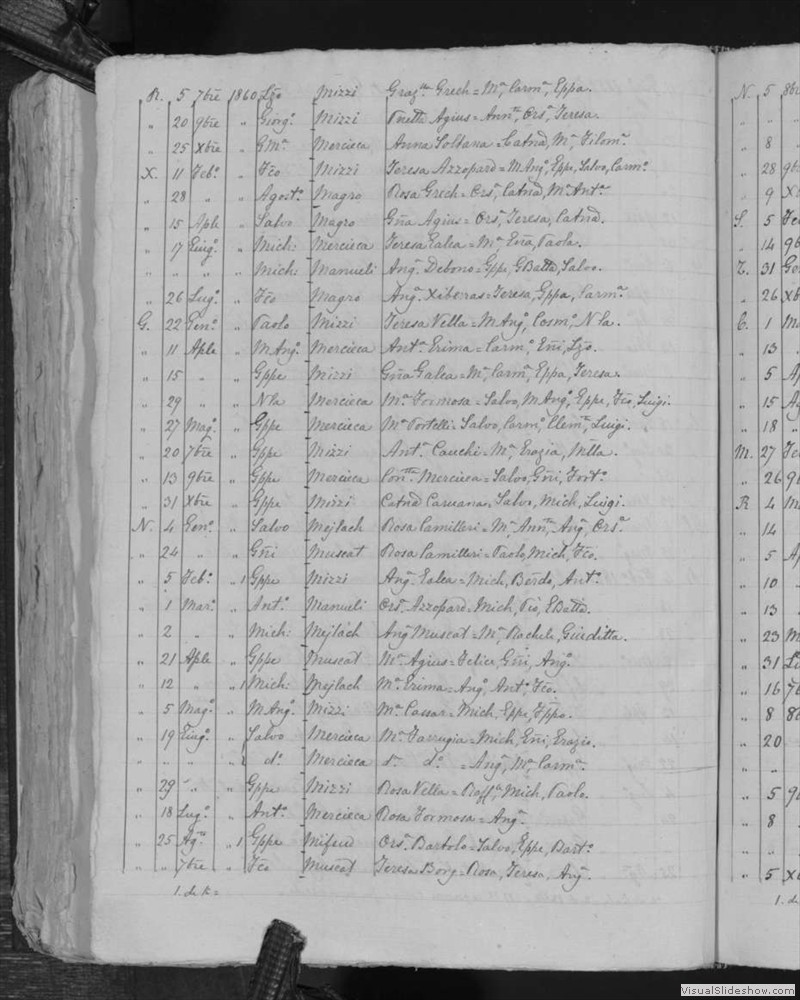 R. 5 7bre 1860 Lzo Mizzi Graz.ta Grech = M.a Carm.a, Eppa.
„ 20 9bre „ Giorg.o Mizzi Agius = Ann.ta, Ors.a, Teresa.
„ 25 Xbre „ G M.a Mercieca Anna Soldana = Catnd, M.a, Filom.a
X. 11 Feb.o „ Fco Mizzi Teresa Azzopard = M Ang.o, Eppe, Salvo, Carm.o
„ 28 „ „ Agost.o Magro Rosa Grech = Ors.a, Catnd, M.a Ant.a
„ 15 Aple „ Salvo Magro Gña Agius = Ors.a, Teresa, Catnd.
„ 17 Giug.o „ Mich: Mercieca Teresa Galea = M.a Paola.
„ „ „ „ Mich: Manueli Ang.a Debono = Gppe, GBatta, Salvo.
„ 26 Lug.o „ Fco Magro Ang.a Xiberras = Teresa, Gppa, Carm.a
G. 22 Gen.o „ Paolo Mizzi Teresa Vella = M Ang.o, Cosm.o, Nla.
„ 11 Aple „ M Ang.o Mercieca Ant.a Erima = Carm.o, Gñi, Lzo.
„ 15 „ „ Gppe Mizzi Gña Galea = M.a, Carm.a, Eppa, Teresa.
„ 29 „ „ Nla Mercieca M.a Formosa = Salvo, M Ang.o, Eppe, Fco, Luigi.
„ 27 Mag.o „ Gppe Mercieca M.a Portelli = Salvo, Carm.o, Clem.e, Luigi.
„ 20 7bre „ Gppe Mizzi Ant.a Cauchi = M.a, Grazia,
„ 13 9bre „ Gppe Mercieca Con.tta Mercieca = Salvo, Gñi, Fort.o
„ 31 Xbre „ Gppe Mizzi Catnd Caruana = Salvo, Mich, Luigi.
N. 4 Gen.o „ Salvo Mejlach Rosa Camilleri = M.a, Ann.ta, Ang.a, Ors.a
„ 24 „ „ Gñi Muscat Rosa Camilleri = Paolo, Mich, Fco.
„ 5 Feb.o „ 1 Gppe Mizzi Ang.a Galea = Mich, Berdo, Ant.o
„ 1 Mar.o „ Ant.o Manueli Ors.a Azzopard = Mich, Pio, GBatta.
„ 2 „ „ Mich: Mejlach Ang.a Muscat = M.a, Rachele, Giuditta.
„ 21 Aple „ Gppe Muscat M.a Agius = Felice, Gñi, Ang.o
„ 12 „ „ 1 Mich: Mejlach M.a Erima = Ang.o, Ant.o, Fco.
„ 5 Mag.o „ M Ang.o Mizzi M.a Cassar = Mich, Eppe, Fppo.
„ 19 Giug.o „ Salvo Mercieca M.a Farrugia = Mich, Gñi, Grazio.
„ „ „ „ d.o Mercieca d.a d.a = Ang.a, M.a, Carm.a
„ 29 „ „ Gppe Mizzi Rosa Vella = Raff.o, Mich, Paolo.
„ 18 Lug.o „ Ant.o Mercieca Rosa Formosa = Ang.o
„ 25 Ag.to „ 1 Gppe Mifsud Ors.a Bartolo = Salvo, Eppe, Bart.o
„ „ 7bre „ Fco Muscat Teresa Borg = Rosa, Teresa, Ang.a
N. 5 8b
„ 8
„ 28 9b
„ 9 X
S. 5
„ 14 9b
Z. 31 Ge
„ 26 xb
C. 1 M
„ 13
„ 5 A
„ 15 A
„ 18
M. 27
„ 26 9
R 4 M
„ 14
„ 5 A
„ 10
„ 13
„ 23 M
„ 31 L
„ 16 7
„ 8 8
„ 20
„ 5 9
„ 8
„ 5 X
VisualSlideshow.com